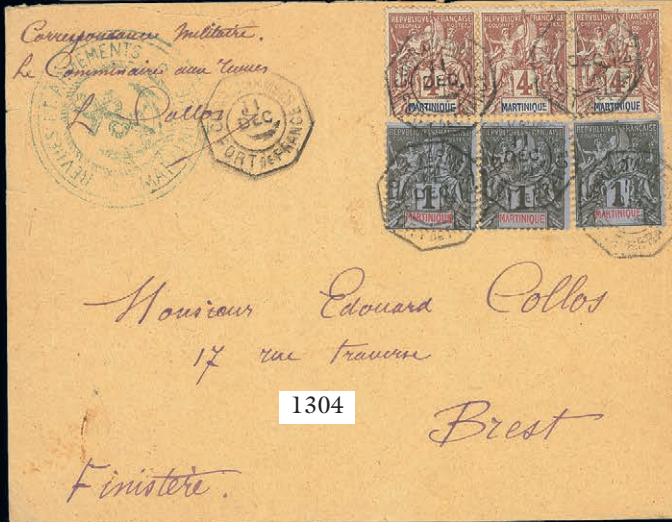 Correspondance Militaire.
Le Commissaire aux revues
L. Collos
REVUES ET ARMEMENTS
MARTINIQUE
11
DEC
FORT DE FRANCE
REPUBLIQUE FRANÇAISE
COLONIES POSTES
4
MARTINIQUE
REPUBLIQUE FRANÇAISE
COLONIES POSTES
4
MARTINIQUE
REPUBLIQUE FRANÇAISE
COLONIES POSTES
4
MARTINIQUE
REPUBLIQUE FRANÇAISE
1
MARTINIQUE
REPUBLIQUE FRANÇAISE
1
MARTINIQUE
REPUBLIQUE FRANÇAISE
1
MARTINIQUE
Monsieur Edouard Collos
17 rue Traverse
1304
Brest
Finistère.